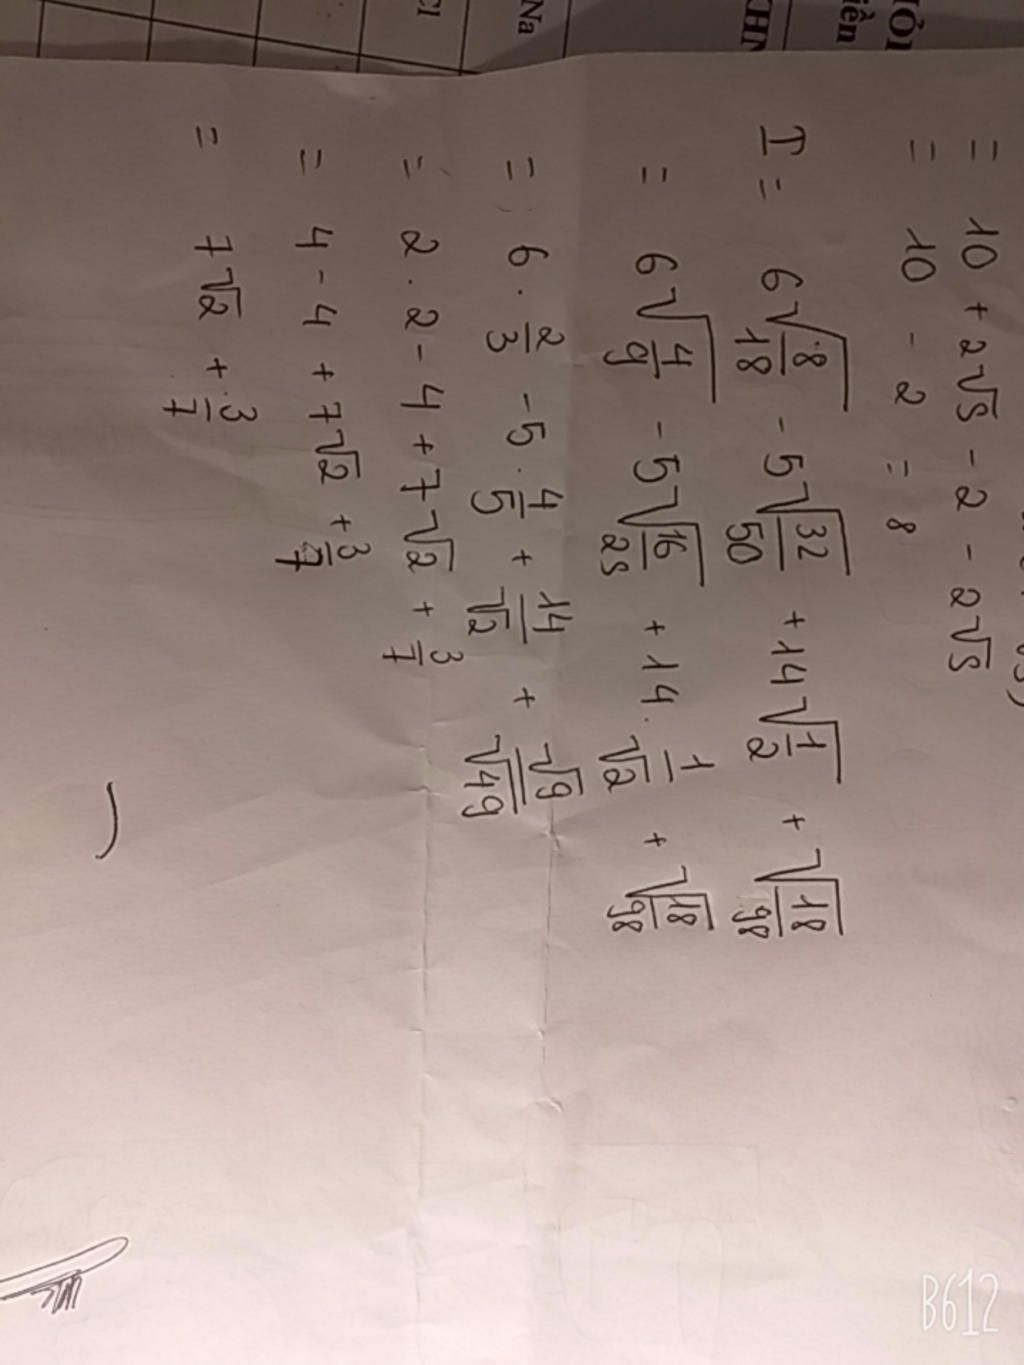 ỎI
iền
KHN
Na
CI
= 10 + 2√5 - 2 - 2√5
= 10 - 2 = 8
I = 6√(8/18) - 5√(32/50) + 14√(1/2) + √(18/98)
= 6√(4/9) - 5√(16/25) + 14 . 1/√2 + √(18/98)
= 6 . 2/3 - 5 . 4/5 + 14/√2 + √9/√49
= 2 . 2 - 4 + 7√2 + 3/7
= 4 - 4 + 7√2 + 3/7
= 7√2 + 3/7
B612